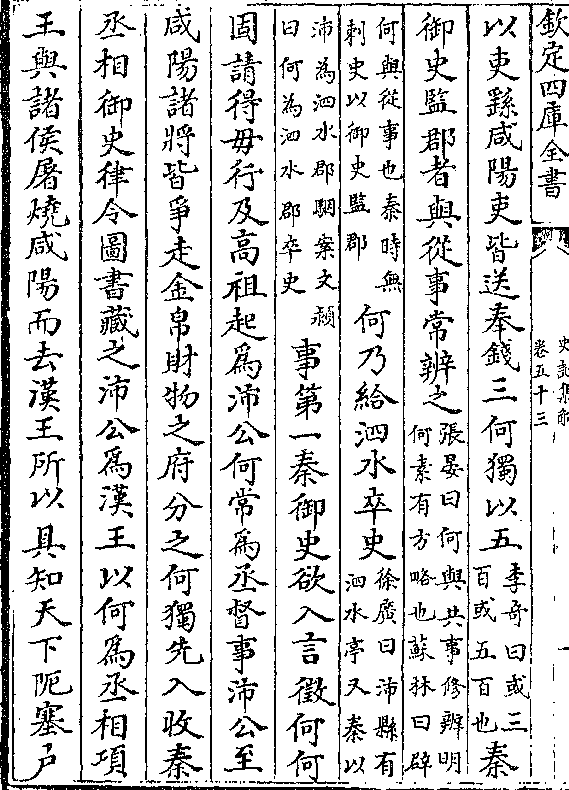 欽定四庫全書
史記集解
卷五十三
以吏繇咸陽吏皆送奉錢三何獨以五李奇曰或三百或五百也秦
御史監郡者與從事常辨之張晏曰何與共事修辨明何素有方略也蘇林曰辟
何與從事也秦時無刺史以御史監郡何乃給泗水卒史徐廣曰沛縣有泗水亭又秦以
沛為泗水郡駰案文穎曰何為泗水郡卒史事第一秦御史欲入言徵何何
固請得毋行及高祖起爲沛公何常爲丞督事沛公至
咸陽諸將皆爭走金帛財物之府分之何獨先入收秦
丞相御史律令圖書藏之沛公爲漢王以何爲丞相項
王與諸侯屠燒咸陽而去漢王所以具知天下阨塞戶